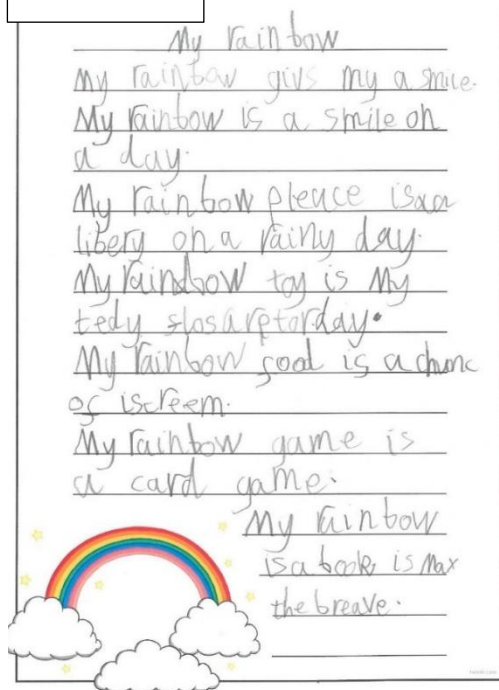 My rainbow
My rainbow givs my a smile.
My rainbow is a smile on
a day.
My rainbow pleace is a
libery on a rainy day.
My rainbow toy is My
tedy
My rainbow food is a chunc
of iscreem.
My rainbow game is
a card game.
My rainbow
is a book is Max
the breave.